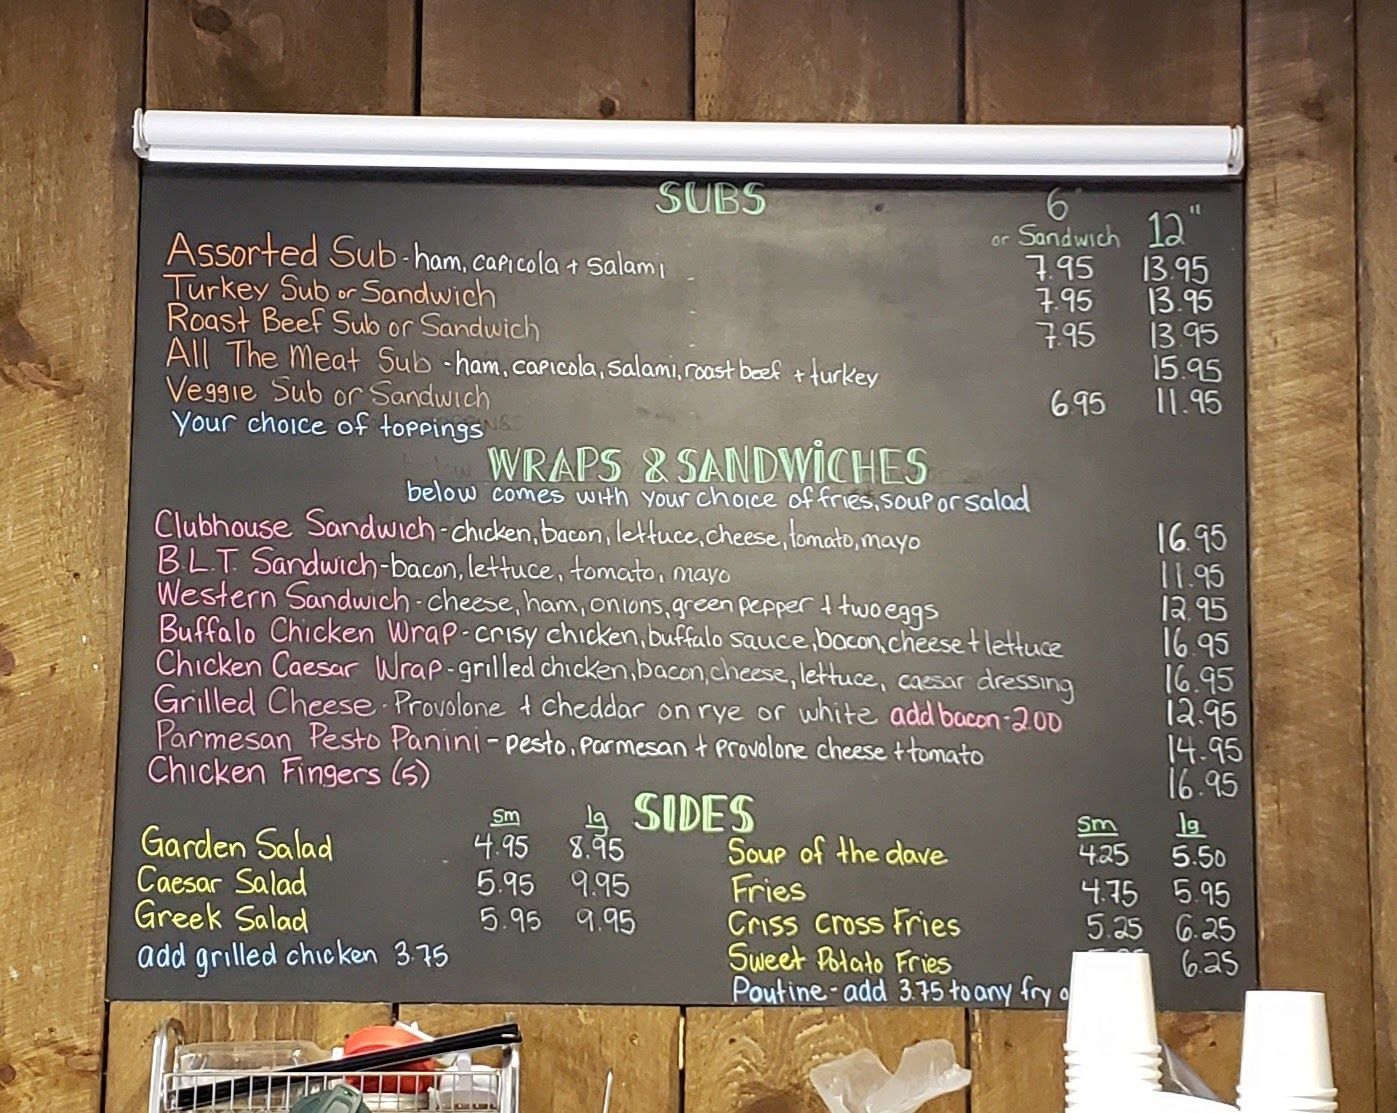 SUBS
6" 12"
or Sandwich
Assorted Sub - ham, capicola + salami 7.95 13.95
Turkey Sub or Sandwich 7.95 13.95
Roast Beef Sub or Sandwich 7.95 13.95
All The Meat Sub - ham, capicola, salami, roast beef + turkey 15.95
Veggie Sub or Sandwich 6.95 11.95
Your choice of toppings
WRAPS & SANDWiCHES
below comes with your choice of fries, soup or salad
Clubhouse Sandwich - chicken, bacon, lettuce, cheese, tomato, mayo 16.95
B.L.T. Sandwich - bacon, lettuce, tomato, mayo 11.95
Western Sandwich - cheese, ham, onions, green pepper + two eggs 12.95
Buffalo Chicken Wrap - crisy chicken, buffalo sauce, bacon, cheese + lettuce 16.95
Chicken Caesar Wrap - grilled chicken, bacon, cheese, lettuce, caesar dressing 16.95
Grilled Cheese - Provolone + cheddar on rye or white add bacon - 2.00 12.95
Parmesan Pesto Panini - pesto, parmesan + provolone cheese + tomato 14.95
Chicken Fingers (5) 16.95
SIDES
sm lg
Garden Salad 4.95 8.95
Caesar Salad 5.95 9.95
Greek Salad 5.95 9.95
add grilled chicken 3.75
sm lg
Soup of the dave 4.25 5.50
Fries 4.75 5.95
Criss Cross Fries 5.25 6.25
Sweet Potato Fries 6.25
Poutine - add 3.75 to any fry